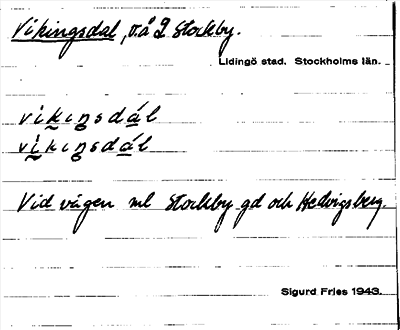 Vikingsdal, v. å 2 Stockby.
Lidingö stad. Stockholms län.
vikiŋsdál
vikiŋsdál
Vid vägen ml Stockby gd och Hedvigsberg.
Sigurd Fries 1943.